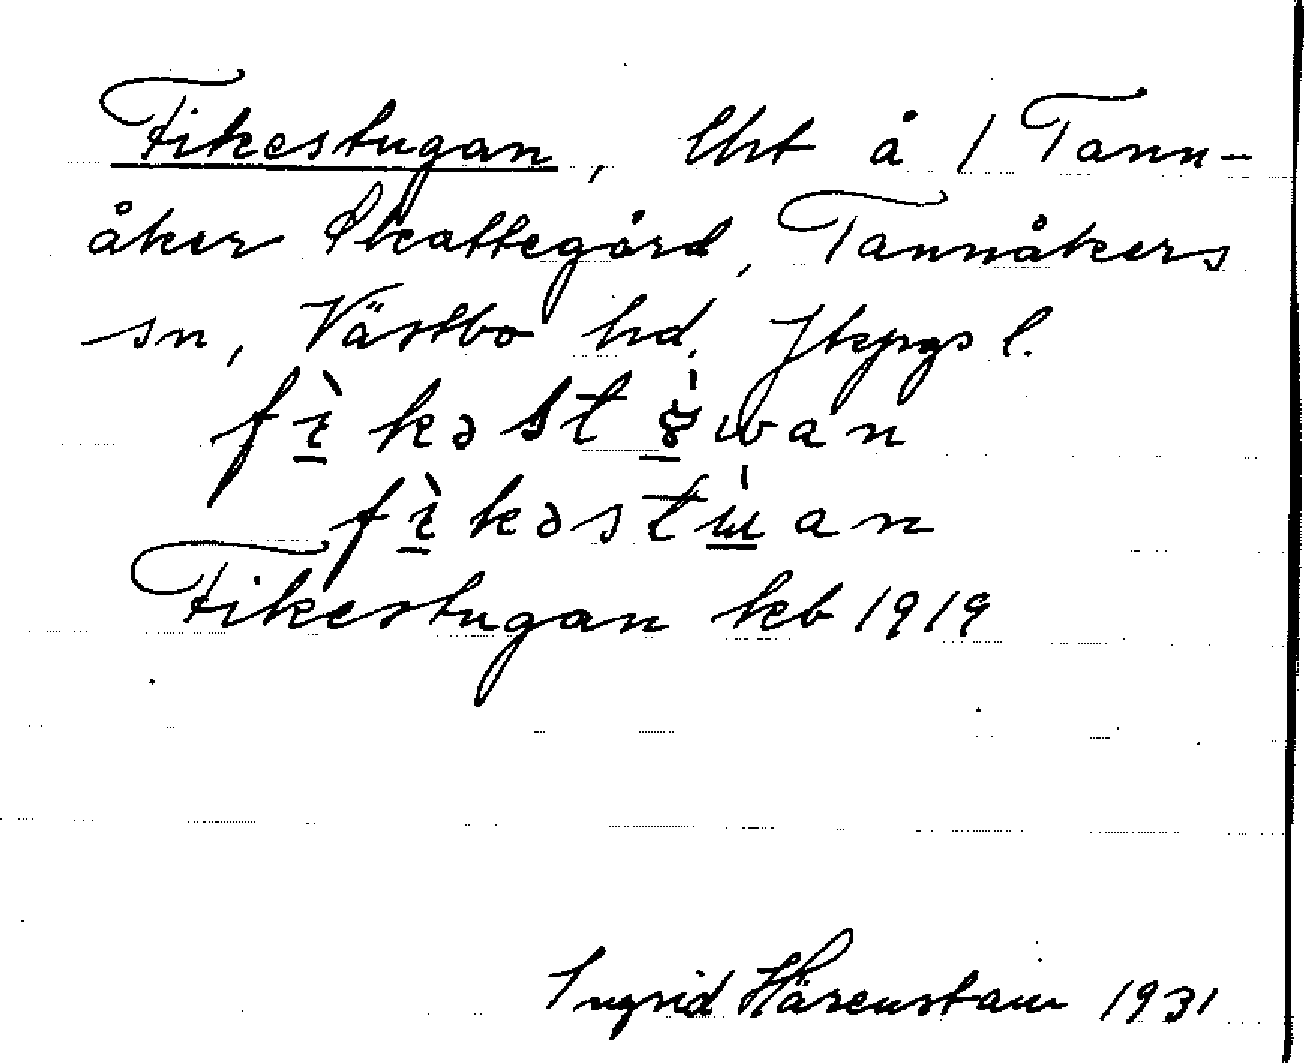 Fikestugan, lht å 1 Tann-
åker Skattegård, Tannåkers
sn, Västbo hd. Jkpgs l.
Fikestugan kb 1919
Ingrid Härenstam 1931